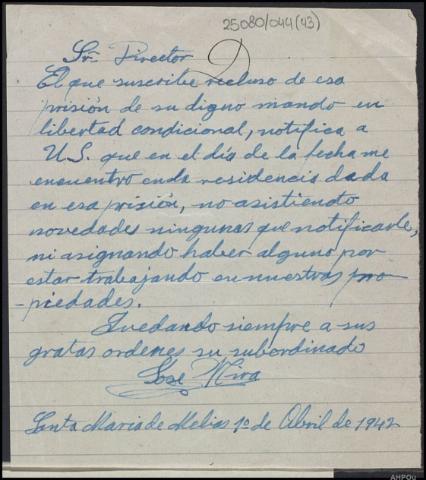 25080/044(43)
Sr. Director
El que suscribe recluso de esa
prisión de su digno mando en
libertad condicional, notifica a
U.S. que en el día de la fecha me
encuentro enda residencia dada
en esa prisión, no asistiendo
novedades ningunas que notificarle,
ni asignando haber alguno por
estar trabajando en nuestras pro
-piedades.
Quedando siempre a sus
gratas ordenes su subordinado
José Mira
Santa Maria de Melias 1º de Abril de 1942
AHPOU